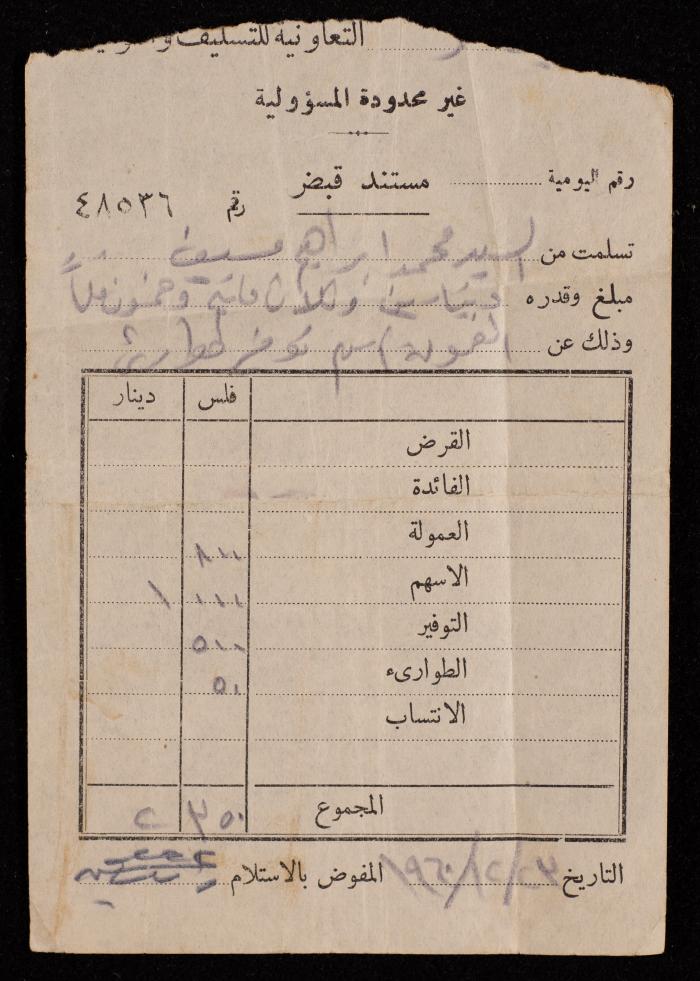 التعاونية للتسليف
غير محدودة المسؤولية
رقم اليومية
مستند قبض
رقم ٤٨٥٣٦
تسلمت من السيد محمد ابراهيم
مبلغ وقدره ديناران وثلاثمائة وخمسون فلساً
وذلك عن العمولة اسهم توفير طوارئ
فلس دينار
القرض
الفائدة
العمولة ٨٠٠
الاسهم ٠٠٠ ١
التوفير ٥٠٠
الطوارىء ٥٠
الانتساب
المجموع ٣٥٠ ٢
التاريخ ٢٣/١٢/١٩٦٠ المفوض بالاستلام